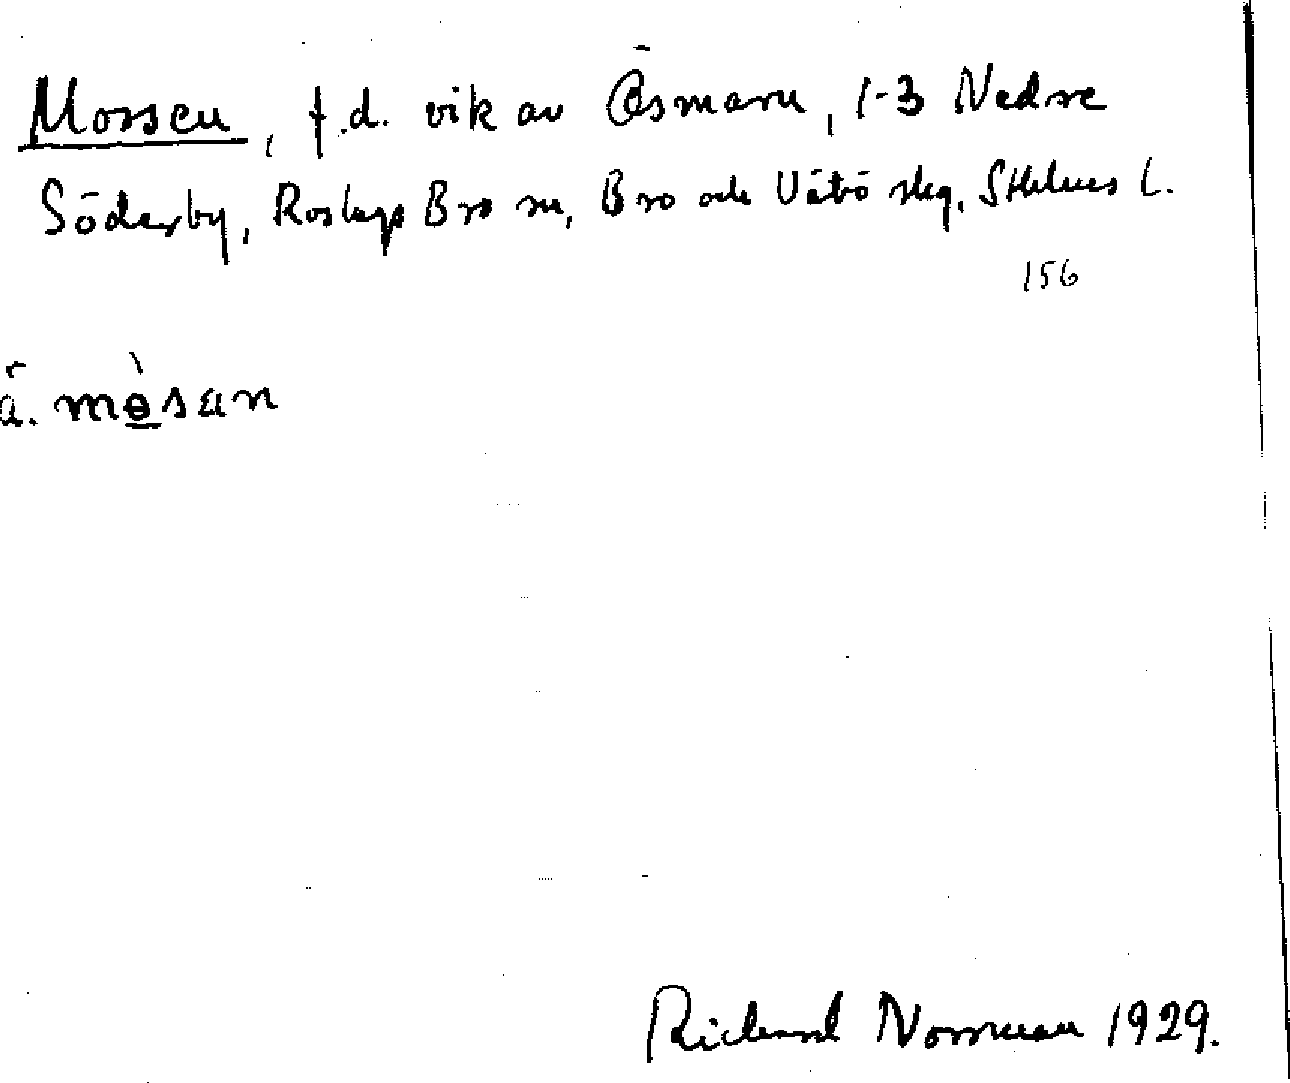 Mossen, f.d. vik av Ösmaren, 1-3 Nedre
Söderby, Roslags Bro sn, Bro och Vätö skg, Sthlms l.
156
å. mòsan
Richard Norrman 1929.